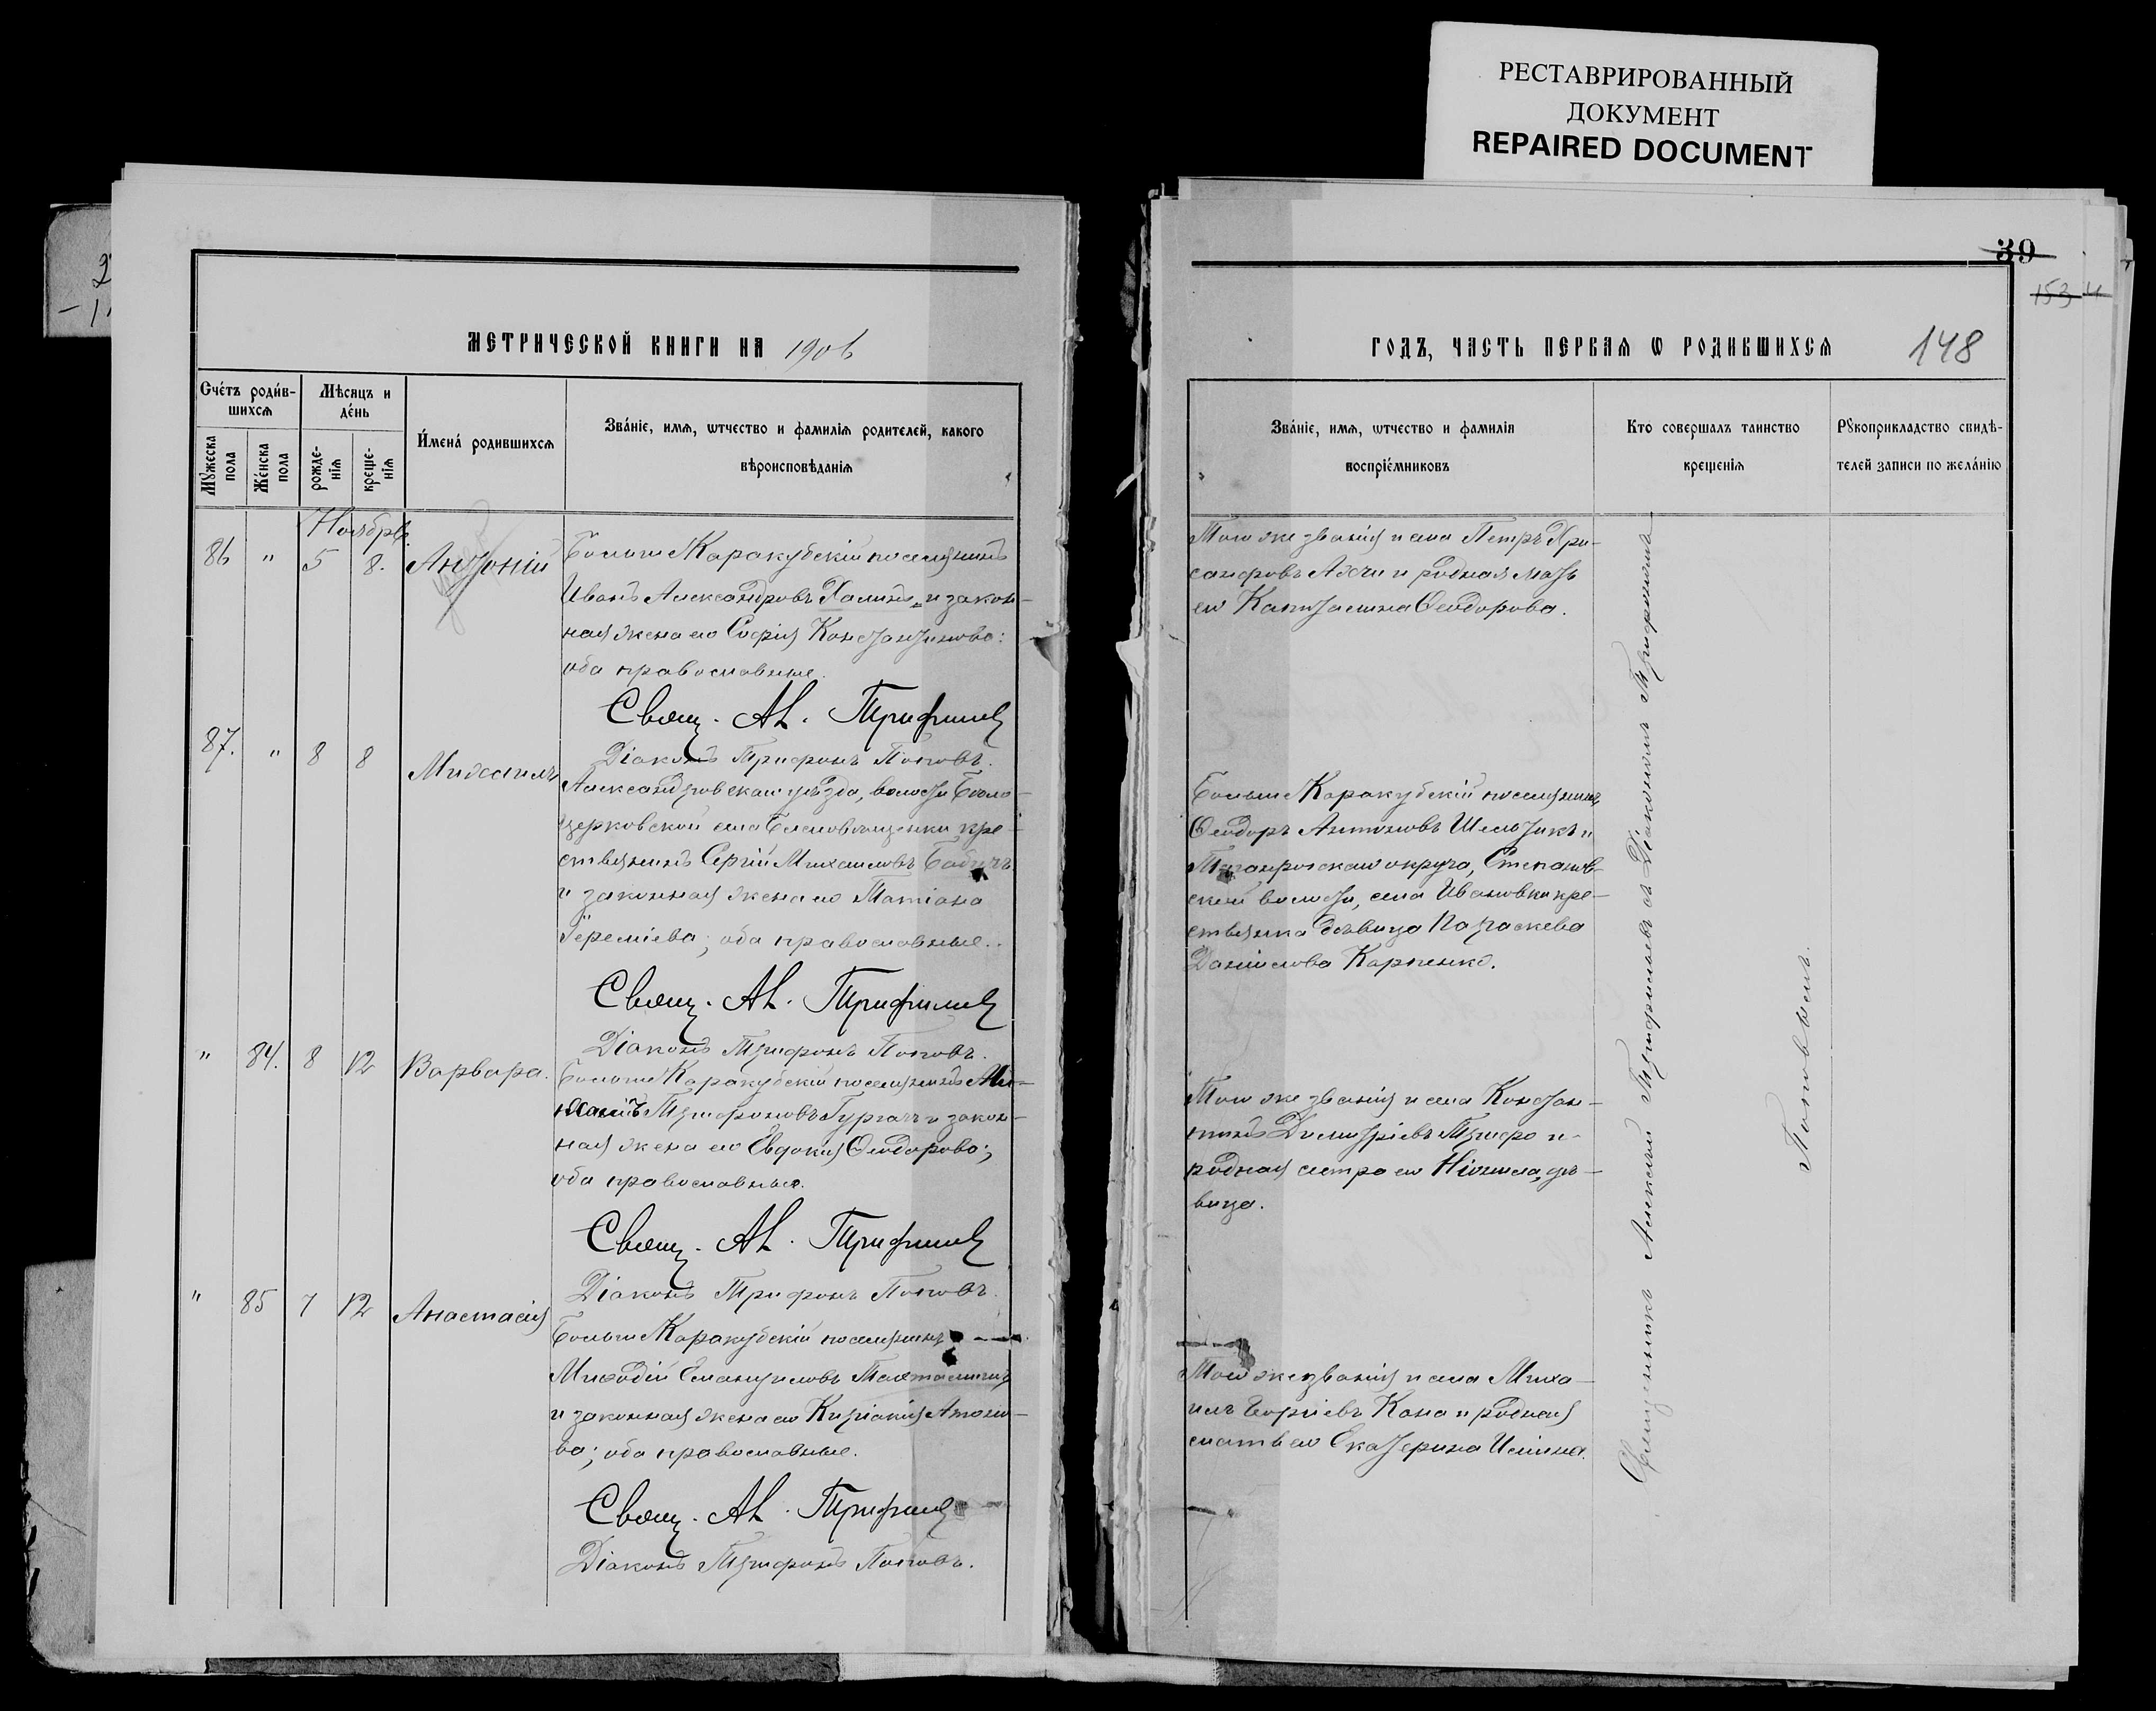 РЕСТАВРИРОВАННЫЙ
ДОКУМЕНТ
REPAIRED DOCUMENT
39
153
148
МЕТРИЧЕСКОЙ КНИГИ НА 1906
ГОДЪ, ЧАСТЬ ПЕРВАЯ Ѡ РОДИВШИХСѦ
Счéтъ роди́в-
шихсѧ
Мѣсяцъ и
дéнь
Мꙋжеска пола
Жéнска пола
рожде-
нїѧ
креще-
нїѧ
И́мена́ родившихсѧ
Зва́нїе, имѧ, ѡтчество и фамилїѧ родителей, какого
вѣроисповѣданїѧ
Зва́нїе, имѧ, ѡтчество и фамилїѧ
воспрїе́мниковъ
Кто совершалъ таинство
крещенїѧ
Рꙋкоприкладство свидѣ-
телей записи по жела́нїю
Ноябрь.
86 " 5 8. Антоній
Больше Каракубскій поселянинъ
Иванъ Александровъ Халинъ и закон-
ная жена его Софія Константинова:
оба православные.
Свящ. Ал. Трифильев
Діаконъ Трифонъ Поповъ.
Того же званія и села Петръ Хри-
санфовъ Аззи и родная мать
его Капитолина Ѳеодорова.
87. " 8 8 Михаилъ
Александровскаго уѣзда, волости Бѣло-
церковской села крe-
стьянинъ Сергій Михаиловъ Бабичъ
и законная жена его Татіана
Іереміева; оба православные.
Свящ. Ал. Трифильев
Діаконъ Трифонъ Поповъ.
Больше Каракубскій поселянинъ
Ѳеодоръ Антоновъ и
Таганрогскаго округа, Степанов-
ской волости, села Ивановки кре-
стьянка дѣвица Параскева
Даніилова Карпенко.
" 84. 8 12 Варвара.
Больше Каракубскій поселянинъ Ми-
хаилъ Трифоновъ Гургачъ и закон-
ная жена его Евдокія Ѳеодорова;
оба православные.
Свящ. Ал. Трифильев
Діаконъ Трифонъ Поповъ.
Того же званія и села Констан-
тинъ Димитріевъ и
родная сестра его дѣ-
вица.
" 85 7 12 Анастасія
Больше Каракубскій поселянинъ
Меѳодій Емануиловъ
и законная жена его Киріакія Антоно-
ва; оба православные.
Свящ. Ал. Трифильев
Діаконъ Трифонъ Поповъ.
Того же званія и села Миха-
илъ Георгіевъ Кана и родная
мать его Екатерина Ильина.
Священникъ Алексѣй Трифильевъ съ Діакономъ Трифономъ
Поповымъ.